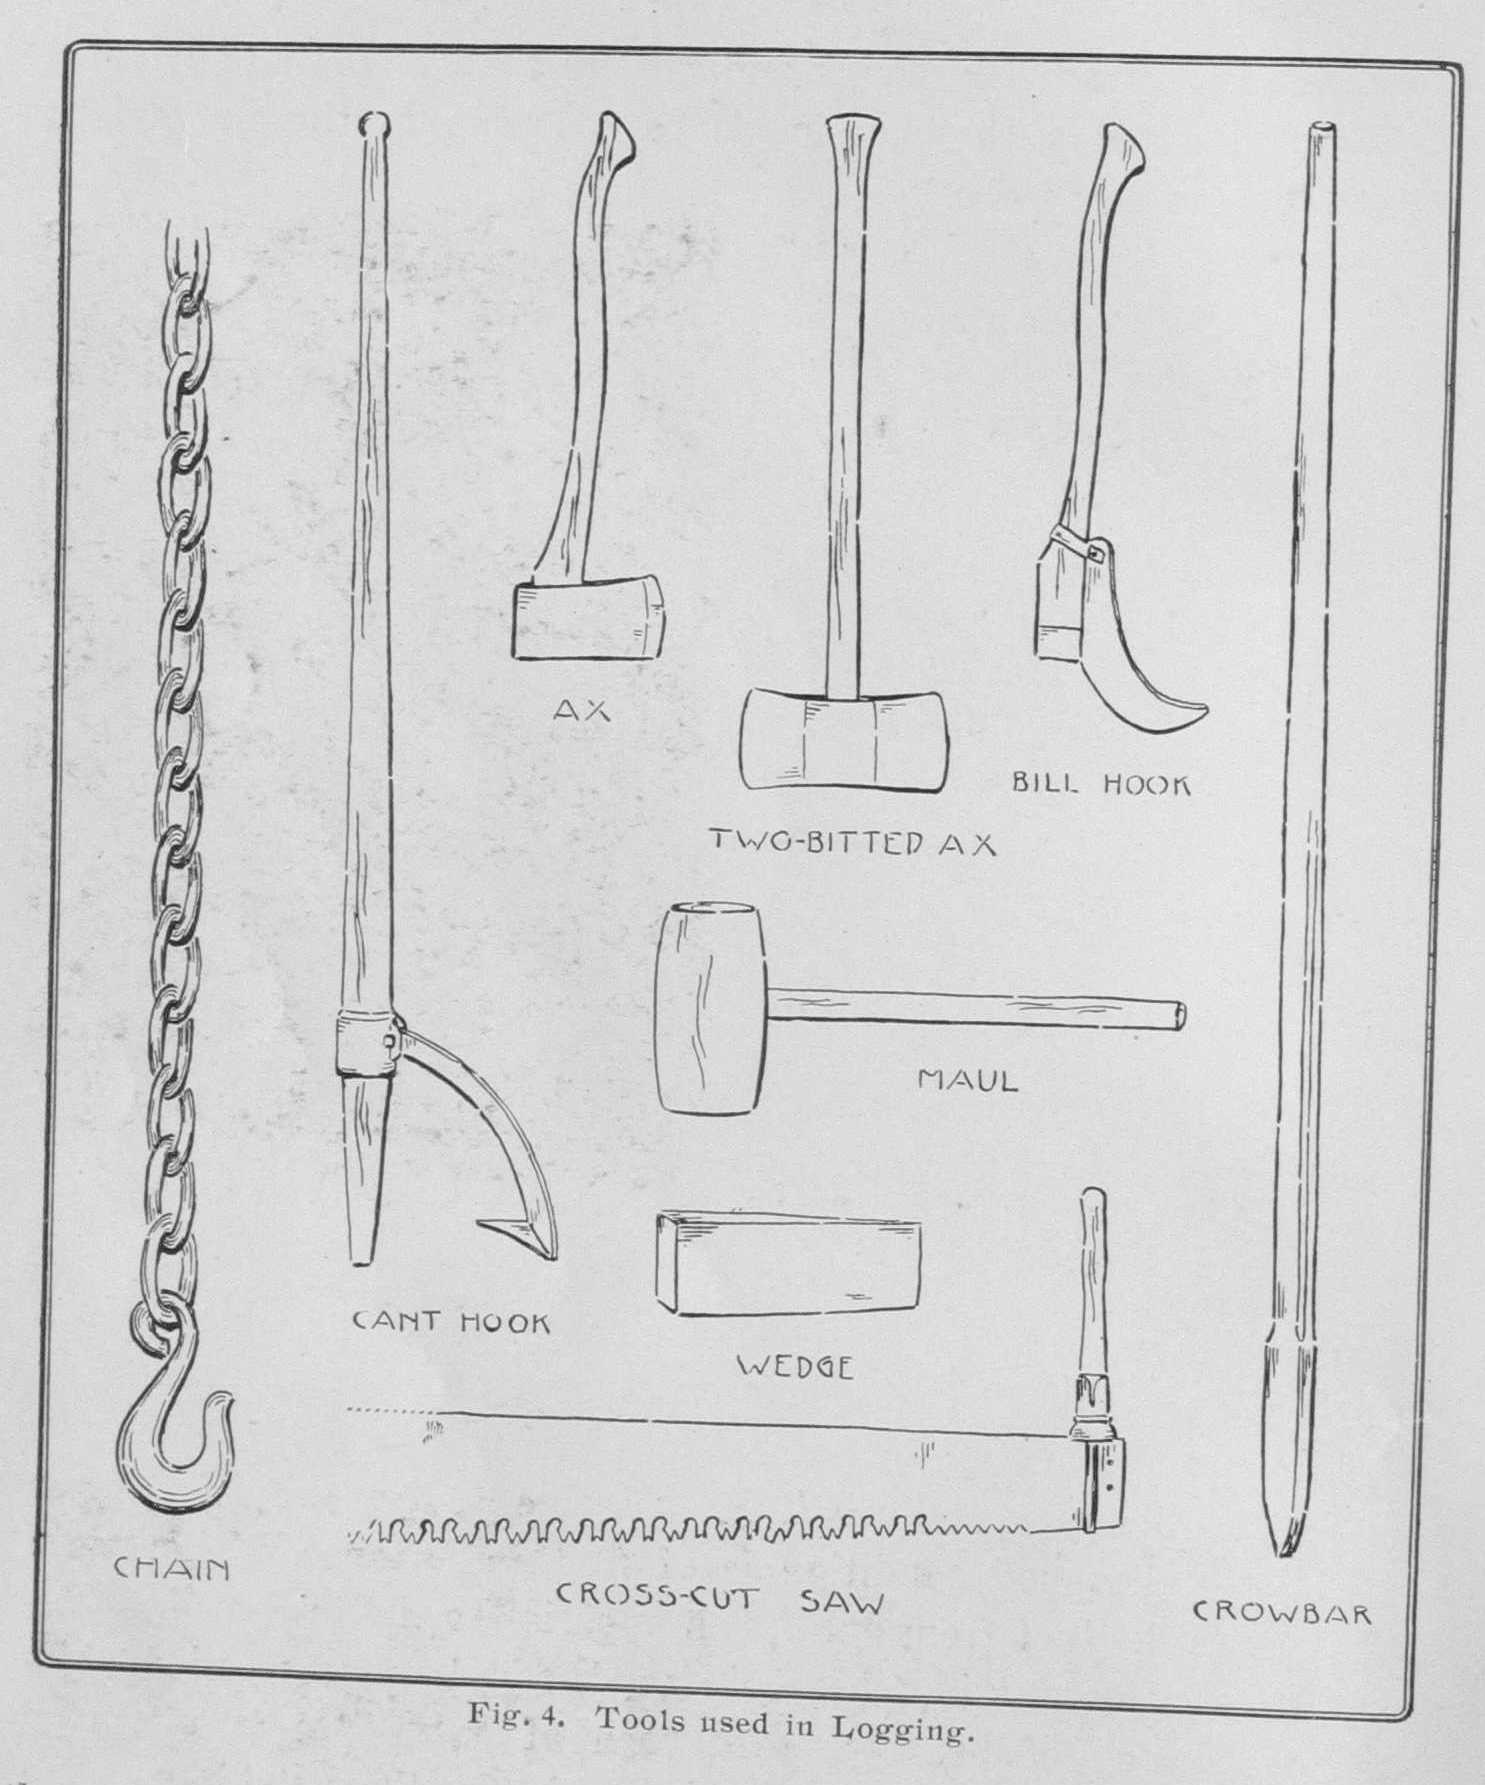 AX
BILL HOOK
TWO-BITTED AX
MAUL
CANT HOOK
WEDGE
CHAIN
CROSS-CUT SAW
CROWBAR
Fig. 4. Tools used in Logging.